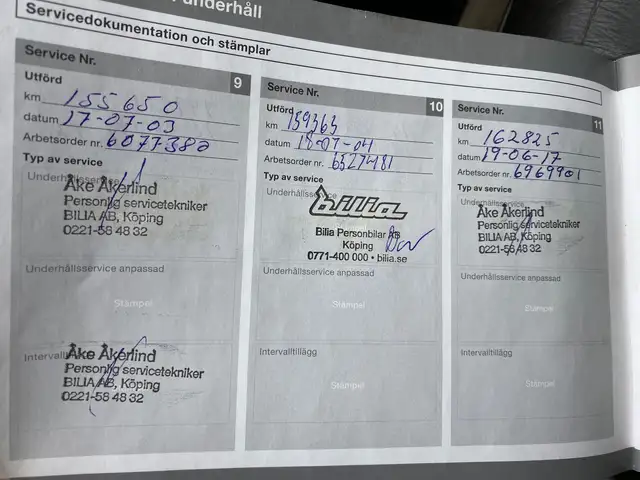 underhåll
Servicedokumentation och stämplar
Service Nr. 9
Utförd
km 155650
datum 17-07-03
Arbetsorder nr. 6077380
Typ av service
Underhållsservice
Åke Åkerlind
Personlig servicetekniker
BILIA AB, Köping
0221-58 48 32
Underhållsservice anpassad
Stämpel
Intervalltillägg
Åke Åkerlind
Personlig servicetekniker
BILIA AB, Köping
0221-58 48 32
Service Nr. 10
Utförd
km 159363
datum 18-07-04
Arbetsorder nr. 6527481
Typ av service
Underhållsservice
bilia
Bilia Personbilar AB
Köping
0771-400 000 • bilia.se
Underhållsservice anpassad
Stämpel
Intervalltillägg
Stämpel
Service Nr. 11
Utförd
km 162825
datum 19-06-17
Arbetsorder nr. 6969901
Typ av service
Underhållsservice
Åke Åkerlind
Personlig servicetekniker
BILIA AB, Köping
0221-58 48 32
Underhållsservice anpassad
Stämpel
Intervalltillägg
Stämpel